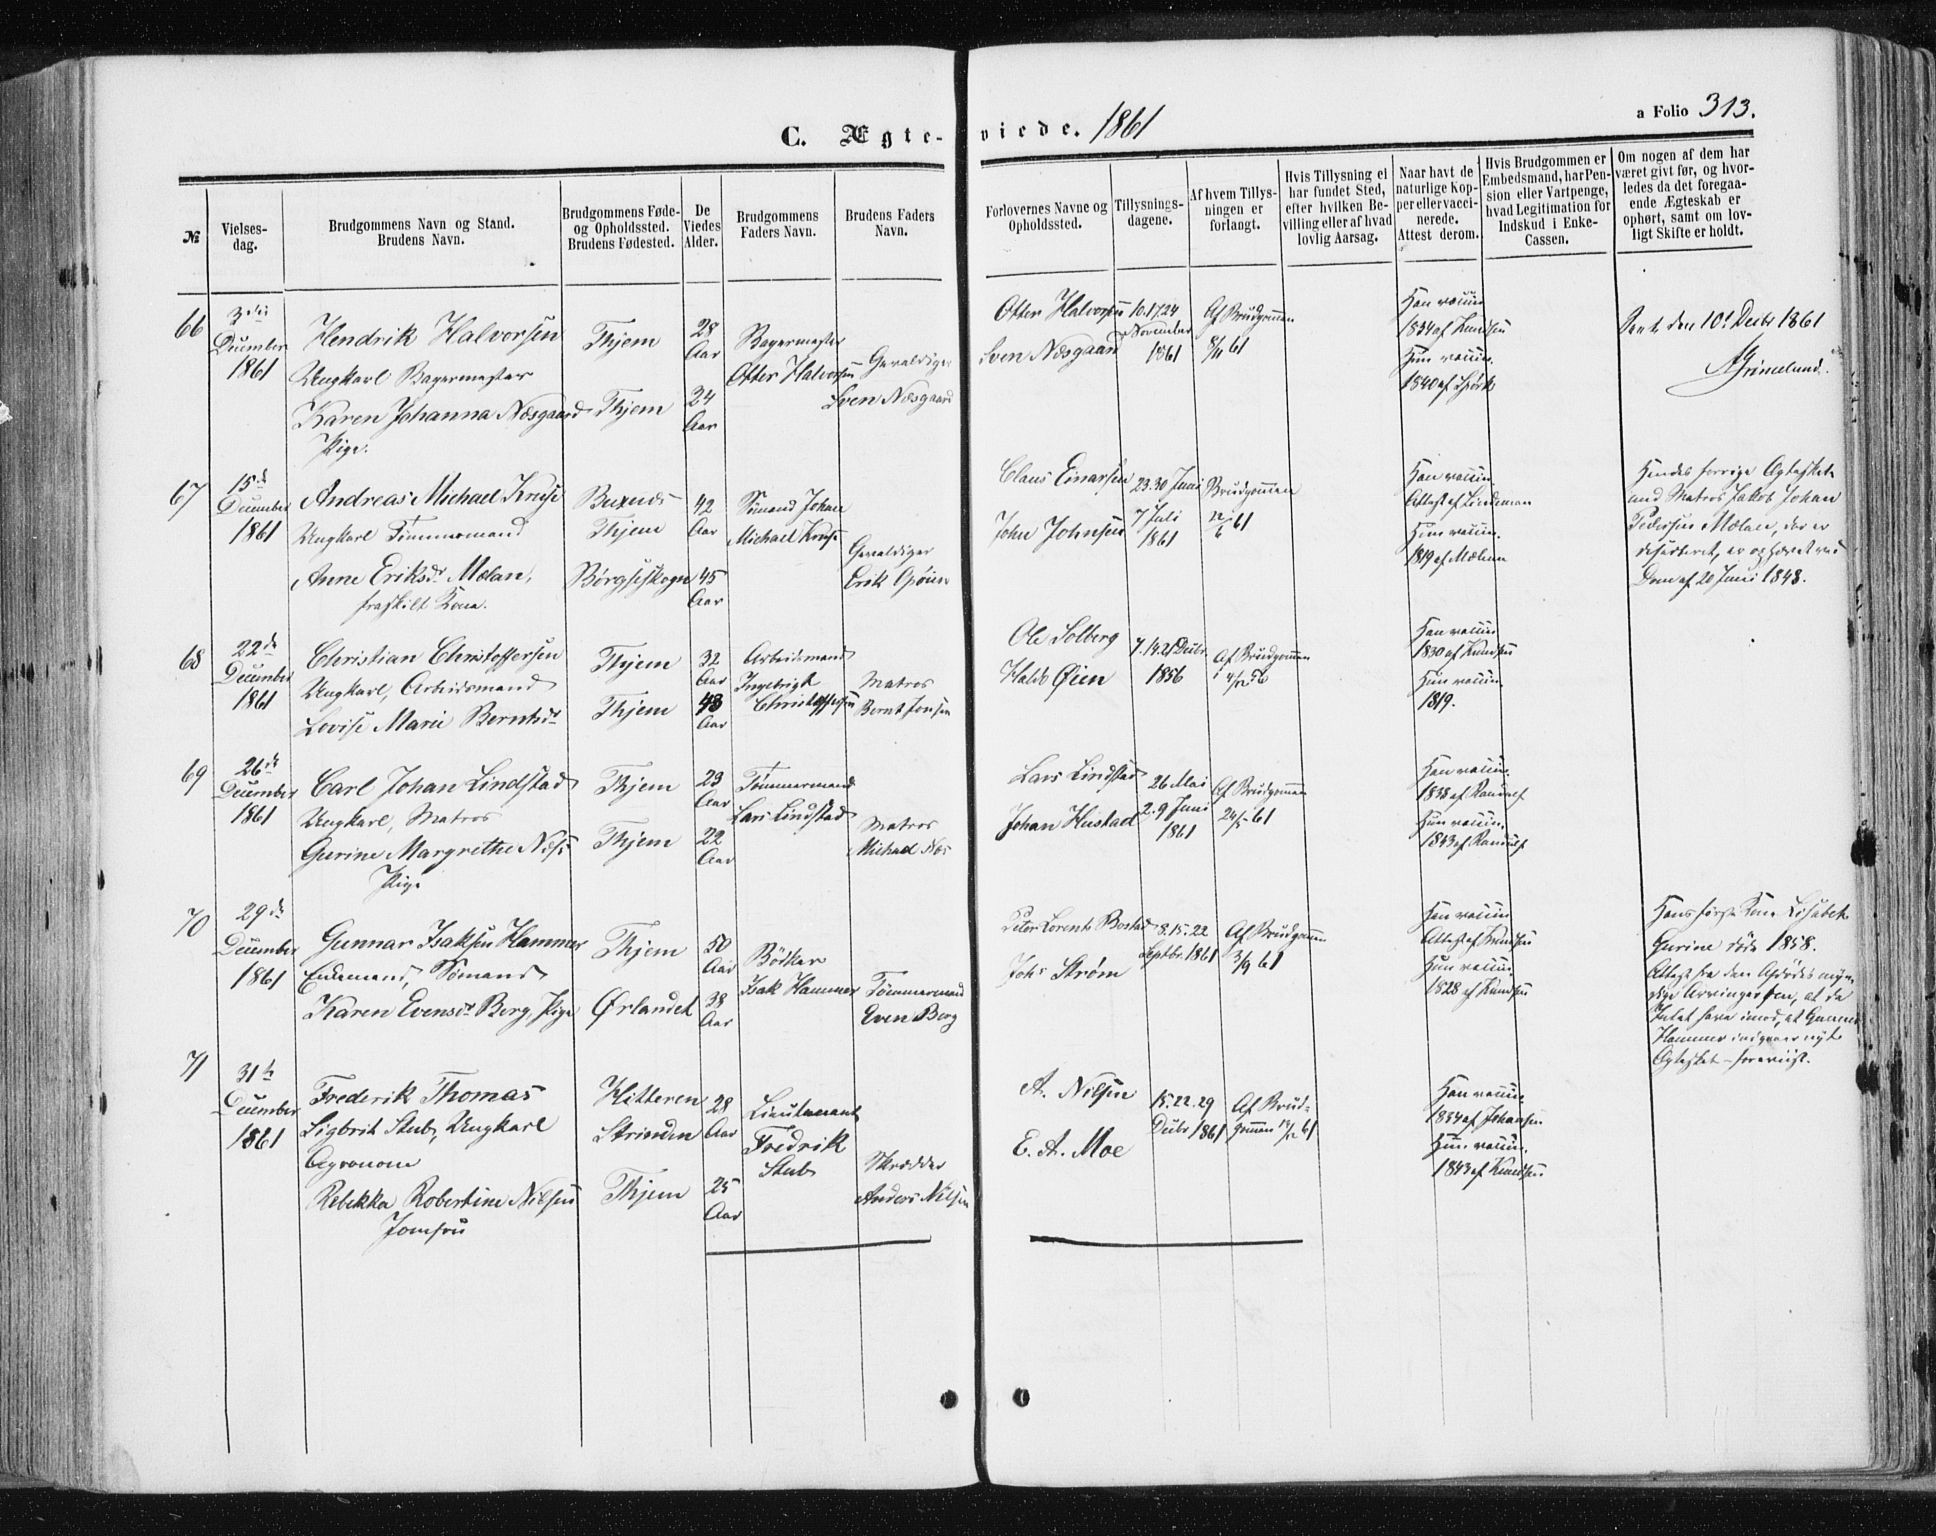 C. Ægte-viede. 1861
a Folio 313.
№
Vielses-
dag.
Brudgommens Navn og Stand.
Brudens Navn.
Brudgommens Føde-
og Opholdssted.
Brudens Fødested.
De
Viedes
Alder.
Brudgommens
Faders Navn.
Brudens Faders
Navn.
Forlovernes Navne og
Opholdssted.
Tillysnings-
dagene.
Af hvem Tillys-
ningen er
forlangt.
Hvis Tillysning ei
har fundet Sted,
efter hvilken Be-
villing eller af hvad
lovlig Aarsag.
Naar havt de
naturlige Kop-
per eller vacci-
nerede.
Attest derom.
Hvis Brudgommen er
Embedsmand, har Pen-
sion eller Vartpenge,
hvad Legitimation for
Indskud i Enke-
Cassen.
Om nogen af dem har
været givt før, og hvor-
ledes da det foregaa-
ende Ægteskab er
ophørt, samt om lov-
ligt Skifte er holdt.
66
3die
December
1861
Hendrik Halvorsen
Ungkarl Bagermester
Karen Johanna Næsgaard
Pige.
Thjem
Thjem
28
Aar
24
Aar
Bagermester
Otter Halvorsen
Geraldiger
Sven Næsgaard
Otter Halvorsen
Sven Næsgaard
10.17.24
November
1861
Af Brudgommen
8/11 61
Han vaccin
1834 af Knudsen
Hun vaccin.
1840 af Lpörk
den 10. Decbr 1861
Grimelund.
67
15de
December
1861
Andreas Michael Kruse
Ungkarl Tömmermand
Anne Eriksdr Mælan,
fraskilt Kone.
Buxnæs
Thjem
Börgseskogn
42
Aar
45
Aar
Sömand Johan
Michael Kruse
Geraldiger
Erik Opöien
Claus Einarsen
John Johnsen
23.30 Juni
7 Juli
1861
Brudgommen
22/6 61
Han vaccin
Attest af Lindeman
Hun vaccin.
1819 af Mælum
Hendes forrige Ægteskab
med Matros Jakob Johan
Pedersen Mælan, der er
deserteret, er ophævet ved
Dom af 20 Juni 1848.
68
22de
December
1861
Christian Christoffersen
Ungkarl, Arbeidsmand
Lovise Marie Berntsdr
Thjem
Thjem
32
Aar
43
Aar
Arbeidsmand
Ingebrigt
Christoffersen
Matros
Bernt Jonsen
Ole Solberg
Haldo Øien
7.14.21 Decbr.
1856
Af Brudgommen
4/12 56
Han vaccin
1830 af Knudsen
Hun vaccin.
1819.
69
26de
December
1861
Carl Johan Lindstad
Ungkarl, Matros
Gurine Margrethe Næss
Pige
Thjem
Thjem
23
Aar
22
Aar
Tömmermand
Lars Lindstad
Matros
Michael Næs
Lars Lindstad
Johan Hustad
26 Mai
2.9 Juni
1861
Af Brudgommen
24/5 61
Han vaccin.
1838 af Randulf
Hun vaccin.
1843 af Randulf
70
29de
December
1861
Gunnar Isaksen Hammer
Enkemand, Sömand
Karen Evensdr Berg, Pige
Thjem
Ørlandet
50
Aar
38
Aar
Bödker
Isak Hammer
Tömmermand
Even Berg
Peter Lorents Bostad
Johs Ström
8.15.22
Septbr. 1861
Af Brudgommen
3/9 61
Han vaccin
Attest af Knudsen
Hun vaccin.
1828 af Knudsen
Hans förste Kone Lisabet
Gurine döde 1858.
Attest fra den Afdödes myn-
dige Arvinger om, at de
Intet have imod, at Gunnar
Hammer indgaaer nyt
Ægteskab - foreviist.
71
31te
December
1861
Frederik Thomas
Sigbrit Stub, Ungkarl
Agronom
Rebekka Robertine Nilsen
Jomfru
Hitteren
Strinden
Thjem
28
Aar
25
Aar
Lieutenant
Fredrik
Stub
Skrædder
Anders Nilsen
A. Nilsen
E. A. Moe
15.22.29
Decbr 1861
Af Brud-
gommen 12/12 61
Han vaccin.
1834 af Johansen
Hun vaccin.
1843 af Knudsen